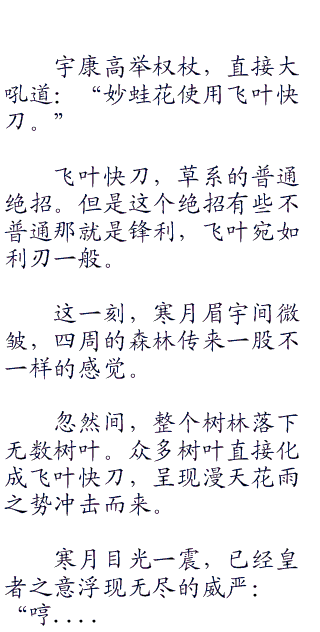 宇康高举权杖，直接大
吼道：“妙蛙花使用飞叶快
刀。”
飞叶快刀，草系的普通
绝招。但是这个绝招有些不
普通那就是锋利，飞叶宛如
利刃一般。
这一刻，寒月眉宇间微
皱，四周的森林传来一股不
一样的感觉。
忽然间，整个树林落下
无数树叶。众多树叶直接化
成飞叶快刀，呈现漫天花雨
之势冲击而来。
寒月目光一震，已经皇
者之意浮现无尽的威严：
“哼....